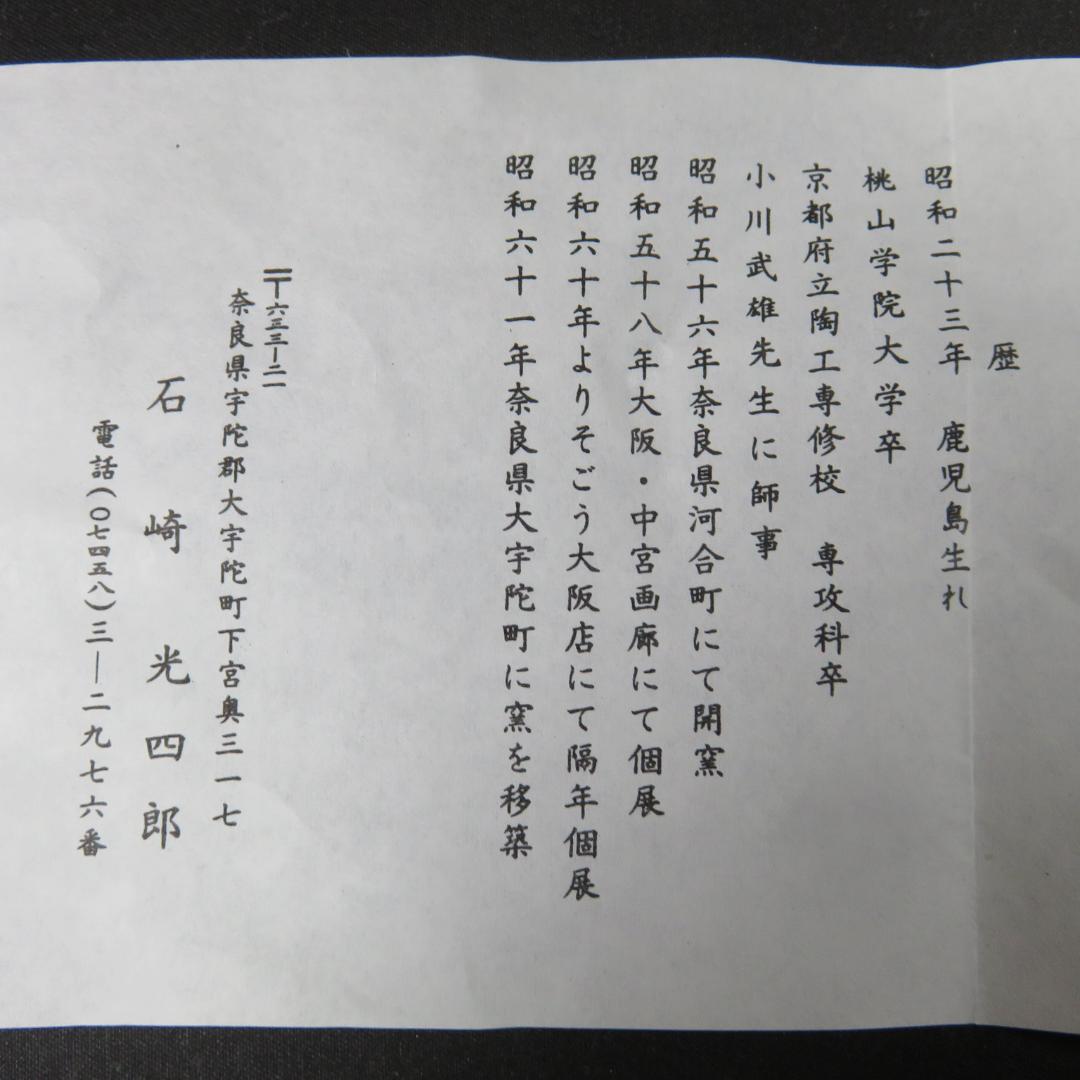 歴
昭和二十三年 鹿児島生れ
桃山学院大学卒
京都府立陶工専修校 専攻科卒
小川武雄先生に師事
昭和五十六年奈良県河合町にて開窯
昭和五十八年大阪・中宮画廊にて個展
昭和六十年よりそごう大阪店にて隔年個展
昭和六十一年奈良県大宇陀町に窯を移築
〒六三三―二一
奈良県宇陀郡大宇陀町下宮奥三一七
石崎光四郎
電話(〇七四五八)三―二九七六番